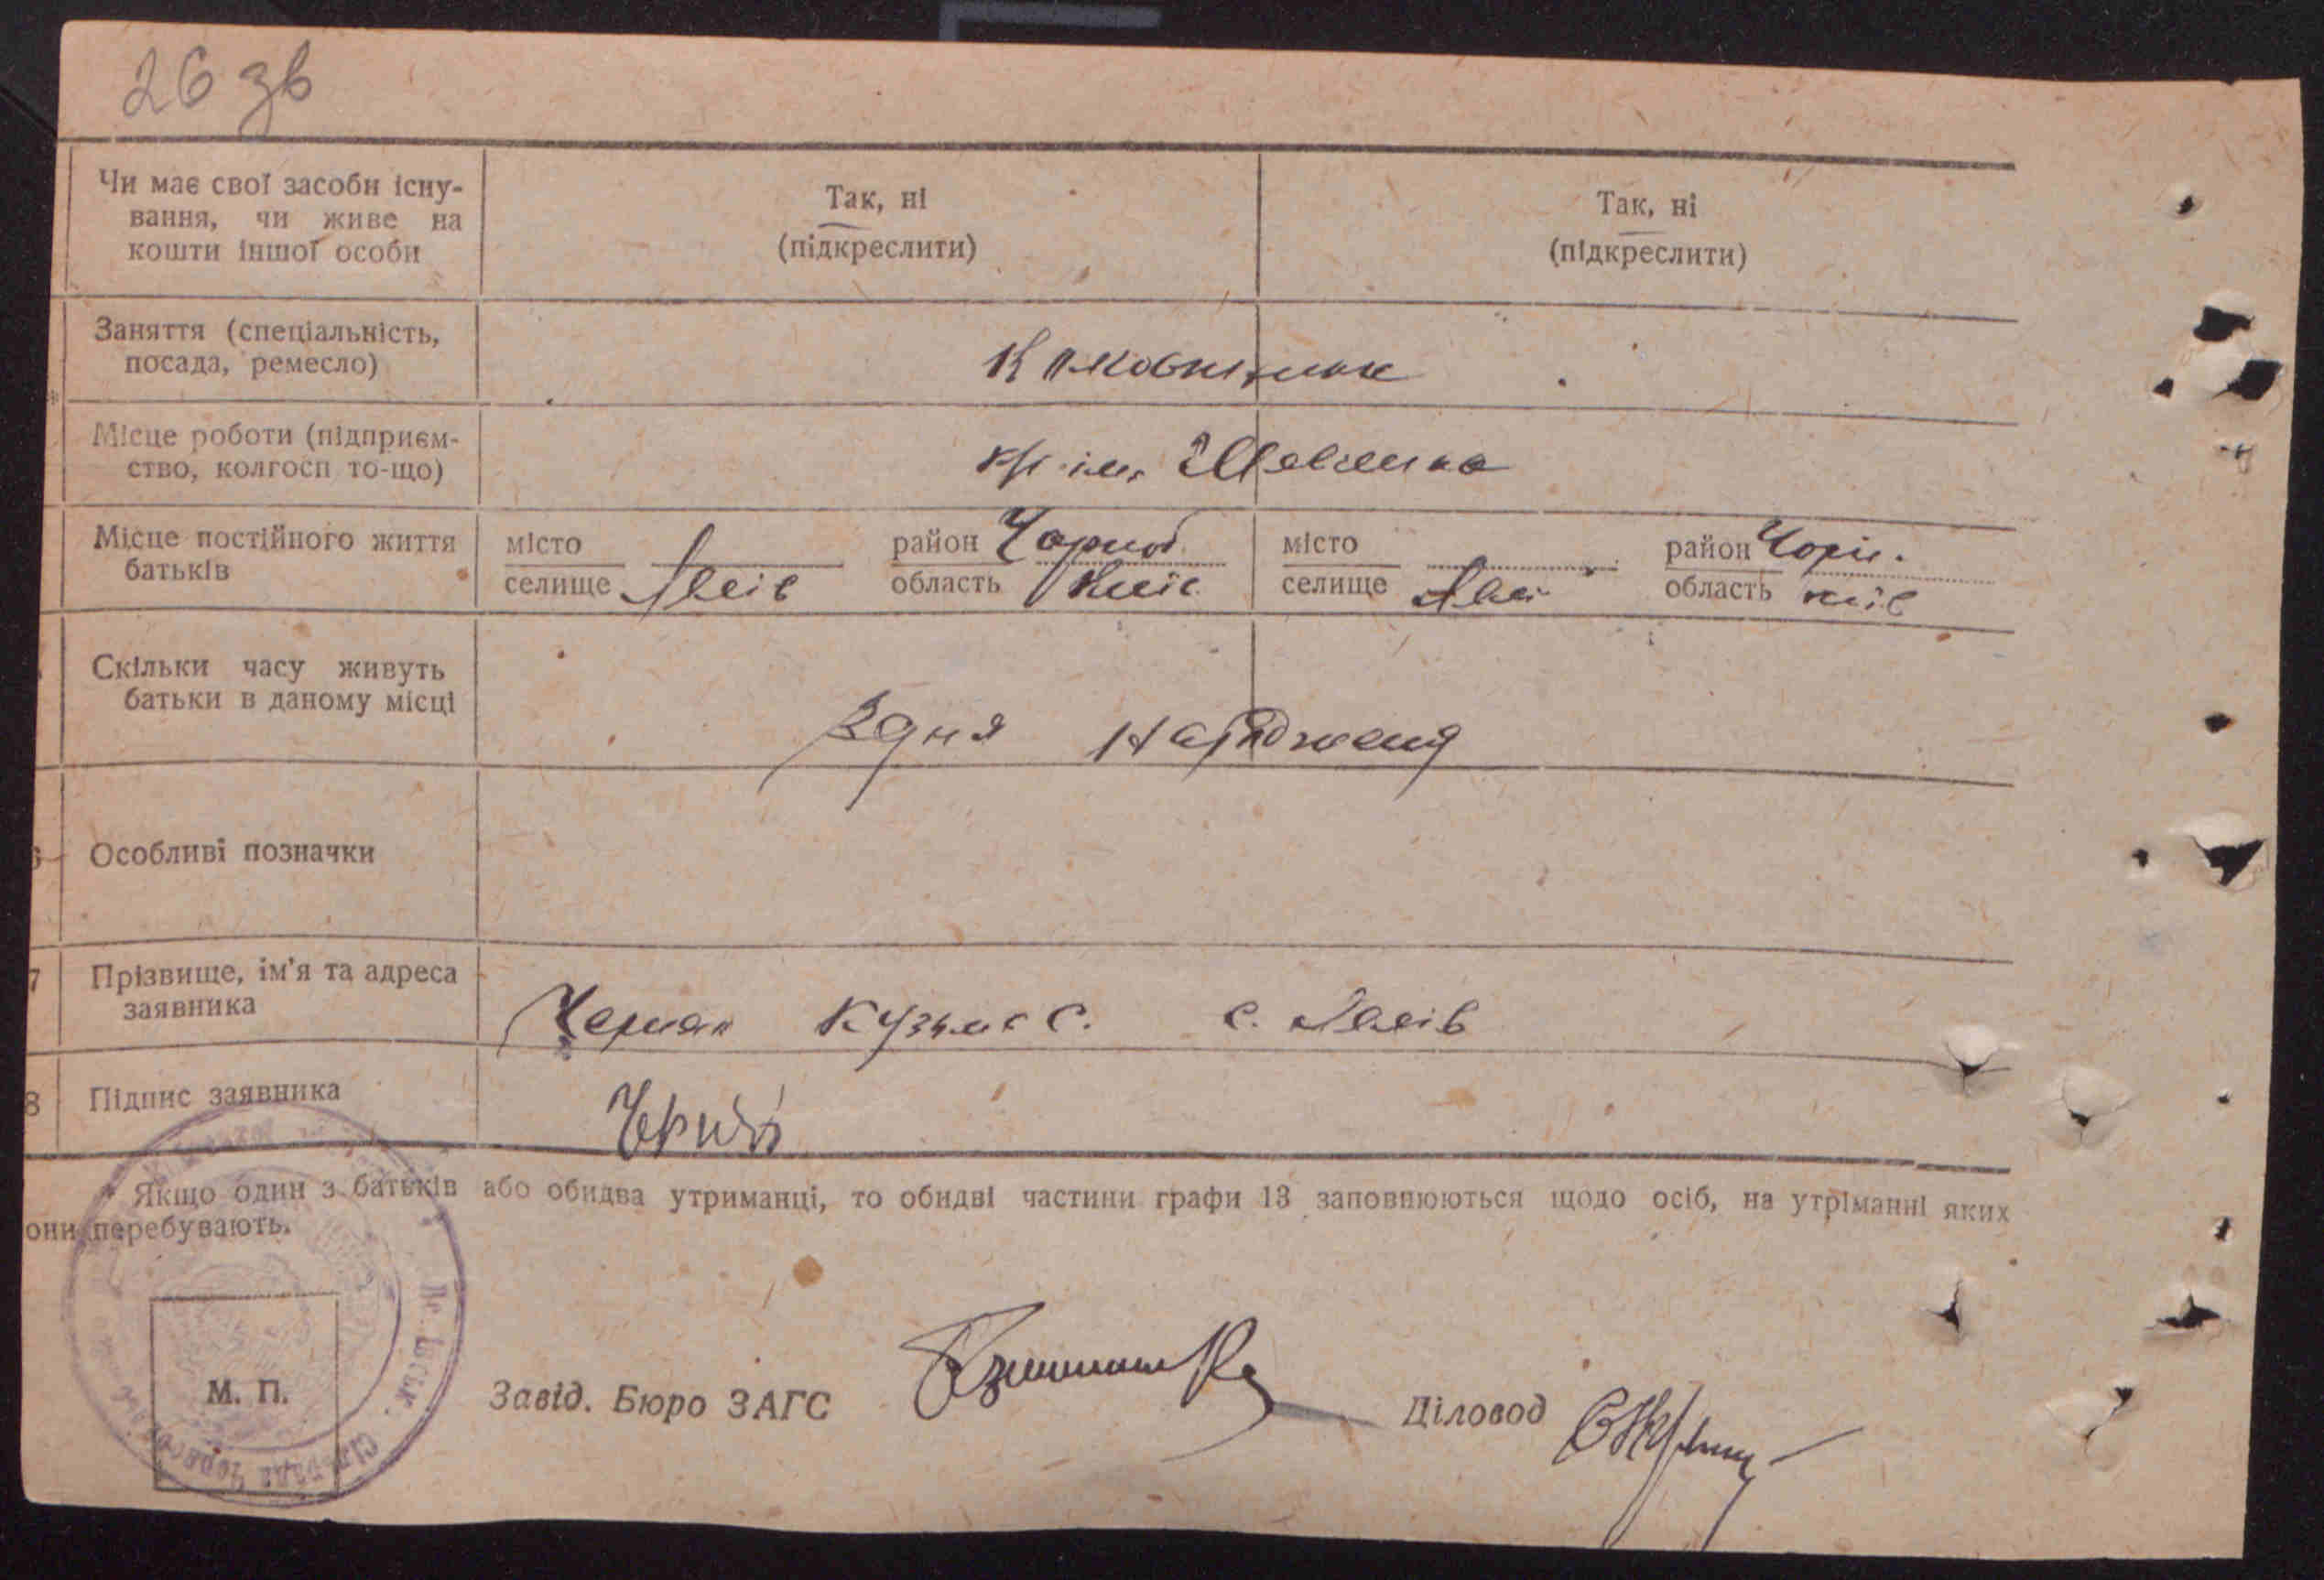 26 зв
Чи має свої засоби існу-
вання, чи живе на
кошти іншої особи
Так, ні
(підкреслити)
Так, ні
(підкреслити)
Заняття (спеціальність,
посада, ремесло)
Місце роботи (підприєм-
ство, колгосп то-що)
к/г ім.
Місце постійного життя
батьків
місто
селище
район Чорноб
область Київ
місто
селище
район Чорн.
область київ
Скільки часу живуть
батьки в даному місці
Здня народженя
Особливі позначки
7 Прізвище, ім'я та адреса
заявника
Кузьма С. с.
8 Підпис заявника
* Якщо один з батьків або обидва утриманці, то обидві частини графи 13 заповнюються щодо осіб, на утріманні яких
они перебувають.
М. П.
Завід. Бюро ЗАГС
Діловод